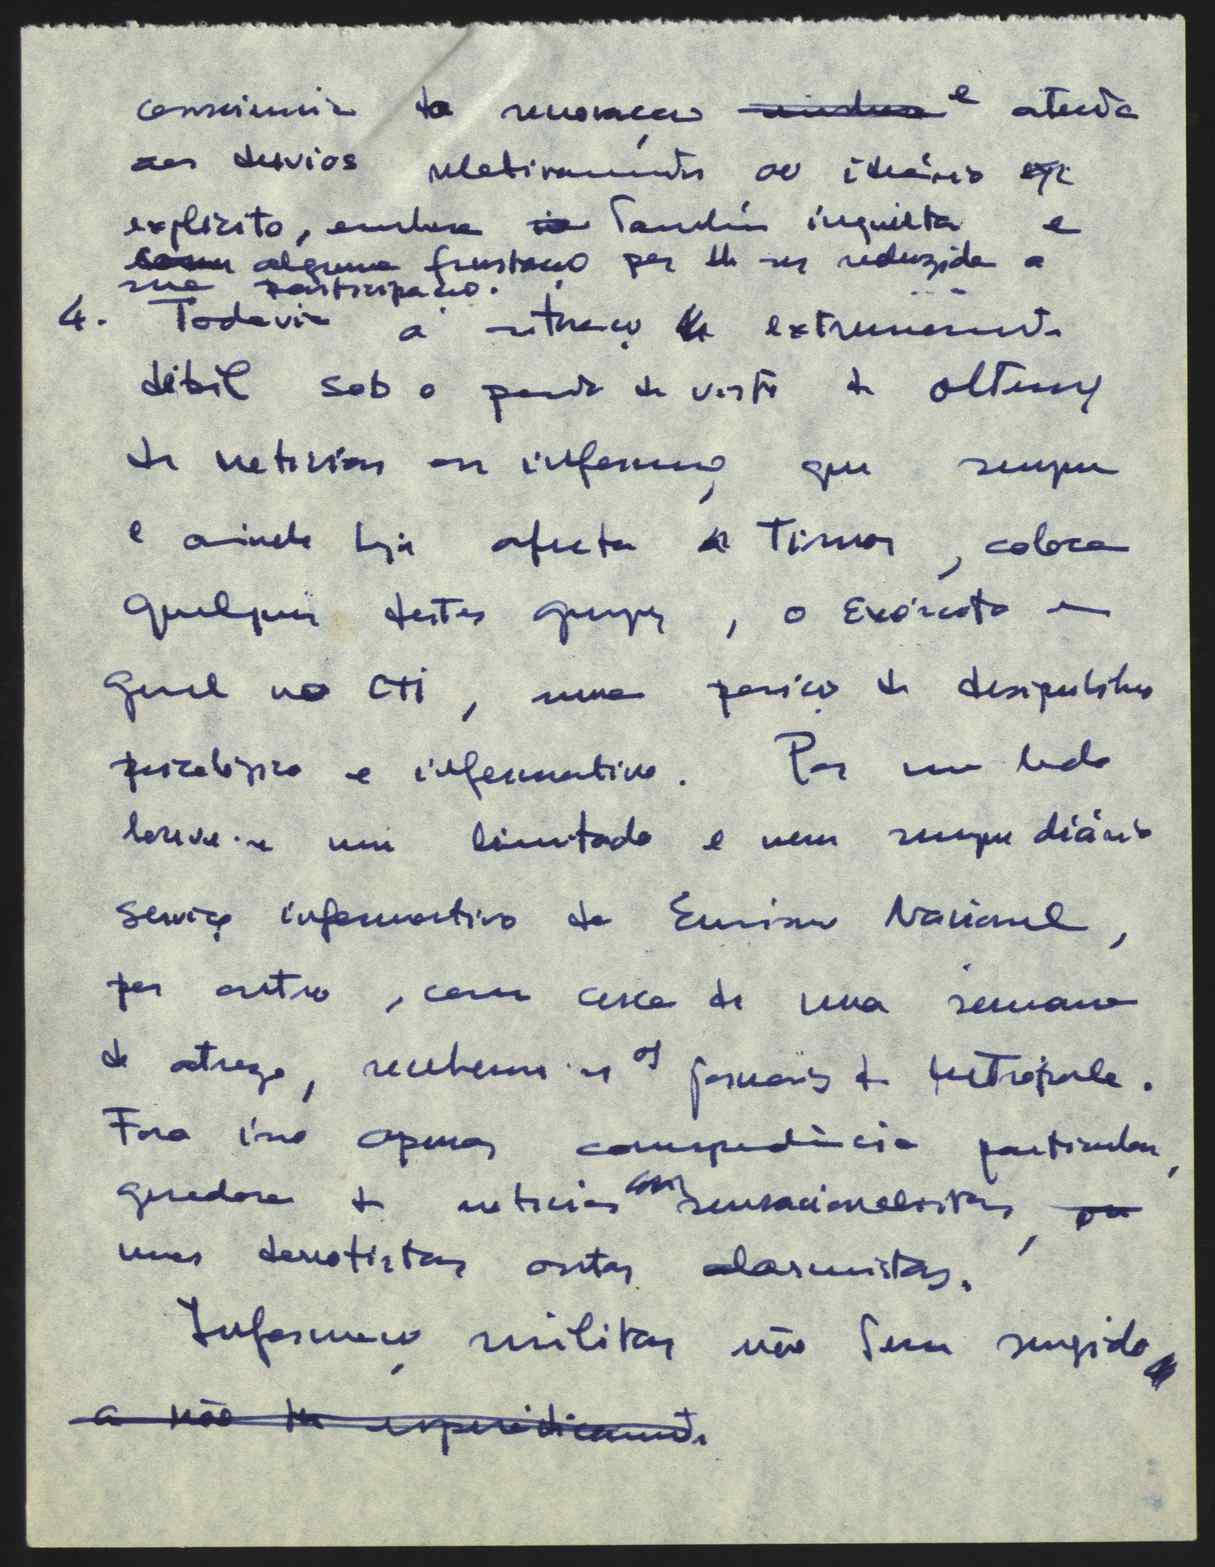 consciencia da renovação e atenta
aos desvios relativamente ao ideário
explicito, embora também inquieta e
alguma frustação por lhe ser reduzida a
sua participação.
4. Todavia a situação extremamente
débil sob o ponto de vista de obtenç
de noticias ou informaç que sempre
e ainda hoje afecta Timor, coloca
qualquer destes grupos, o Exército em
geral no CTI, numa posição de desiquilibrio
psicológico e informativo. Por um lado
houve-se um limitado e nem sempre diário
serviço informativo da Emissora Nacional,
por outro, com cerca de uma semana
de atrazo, recebem-se os jornais da metrópole.
Fora isso apenas correspondência particular,
geradora de noticias sensacionalistas,
umas derrotistas outas alarmistas.
Informação militar não tem surgido
a não ser esporádicamente